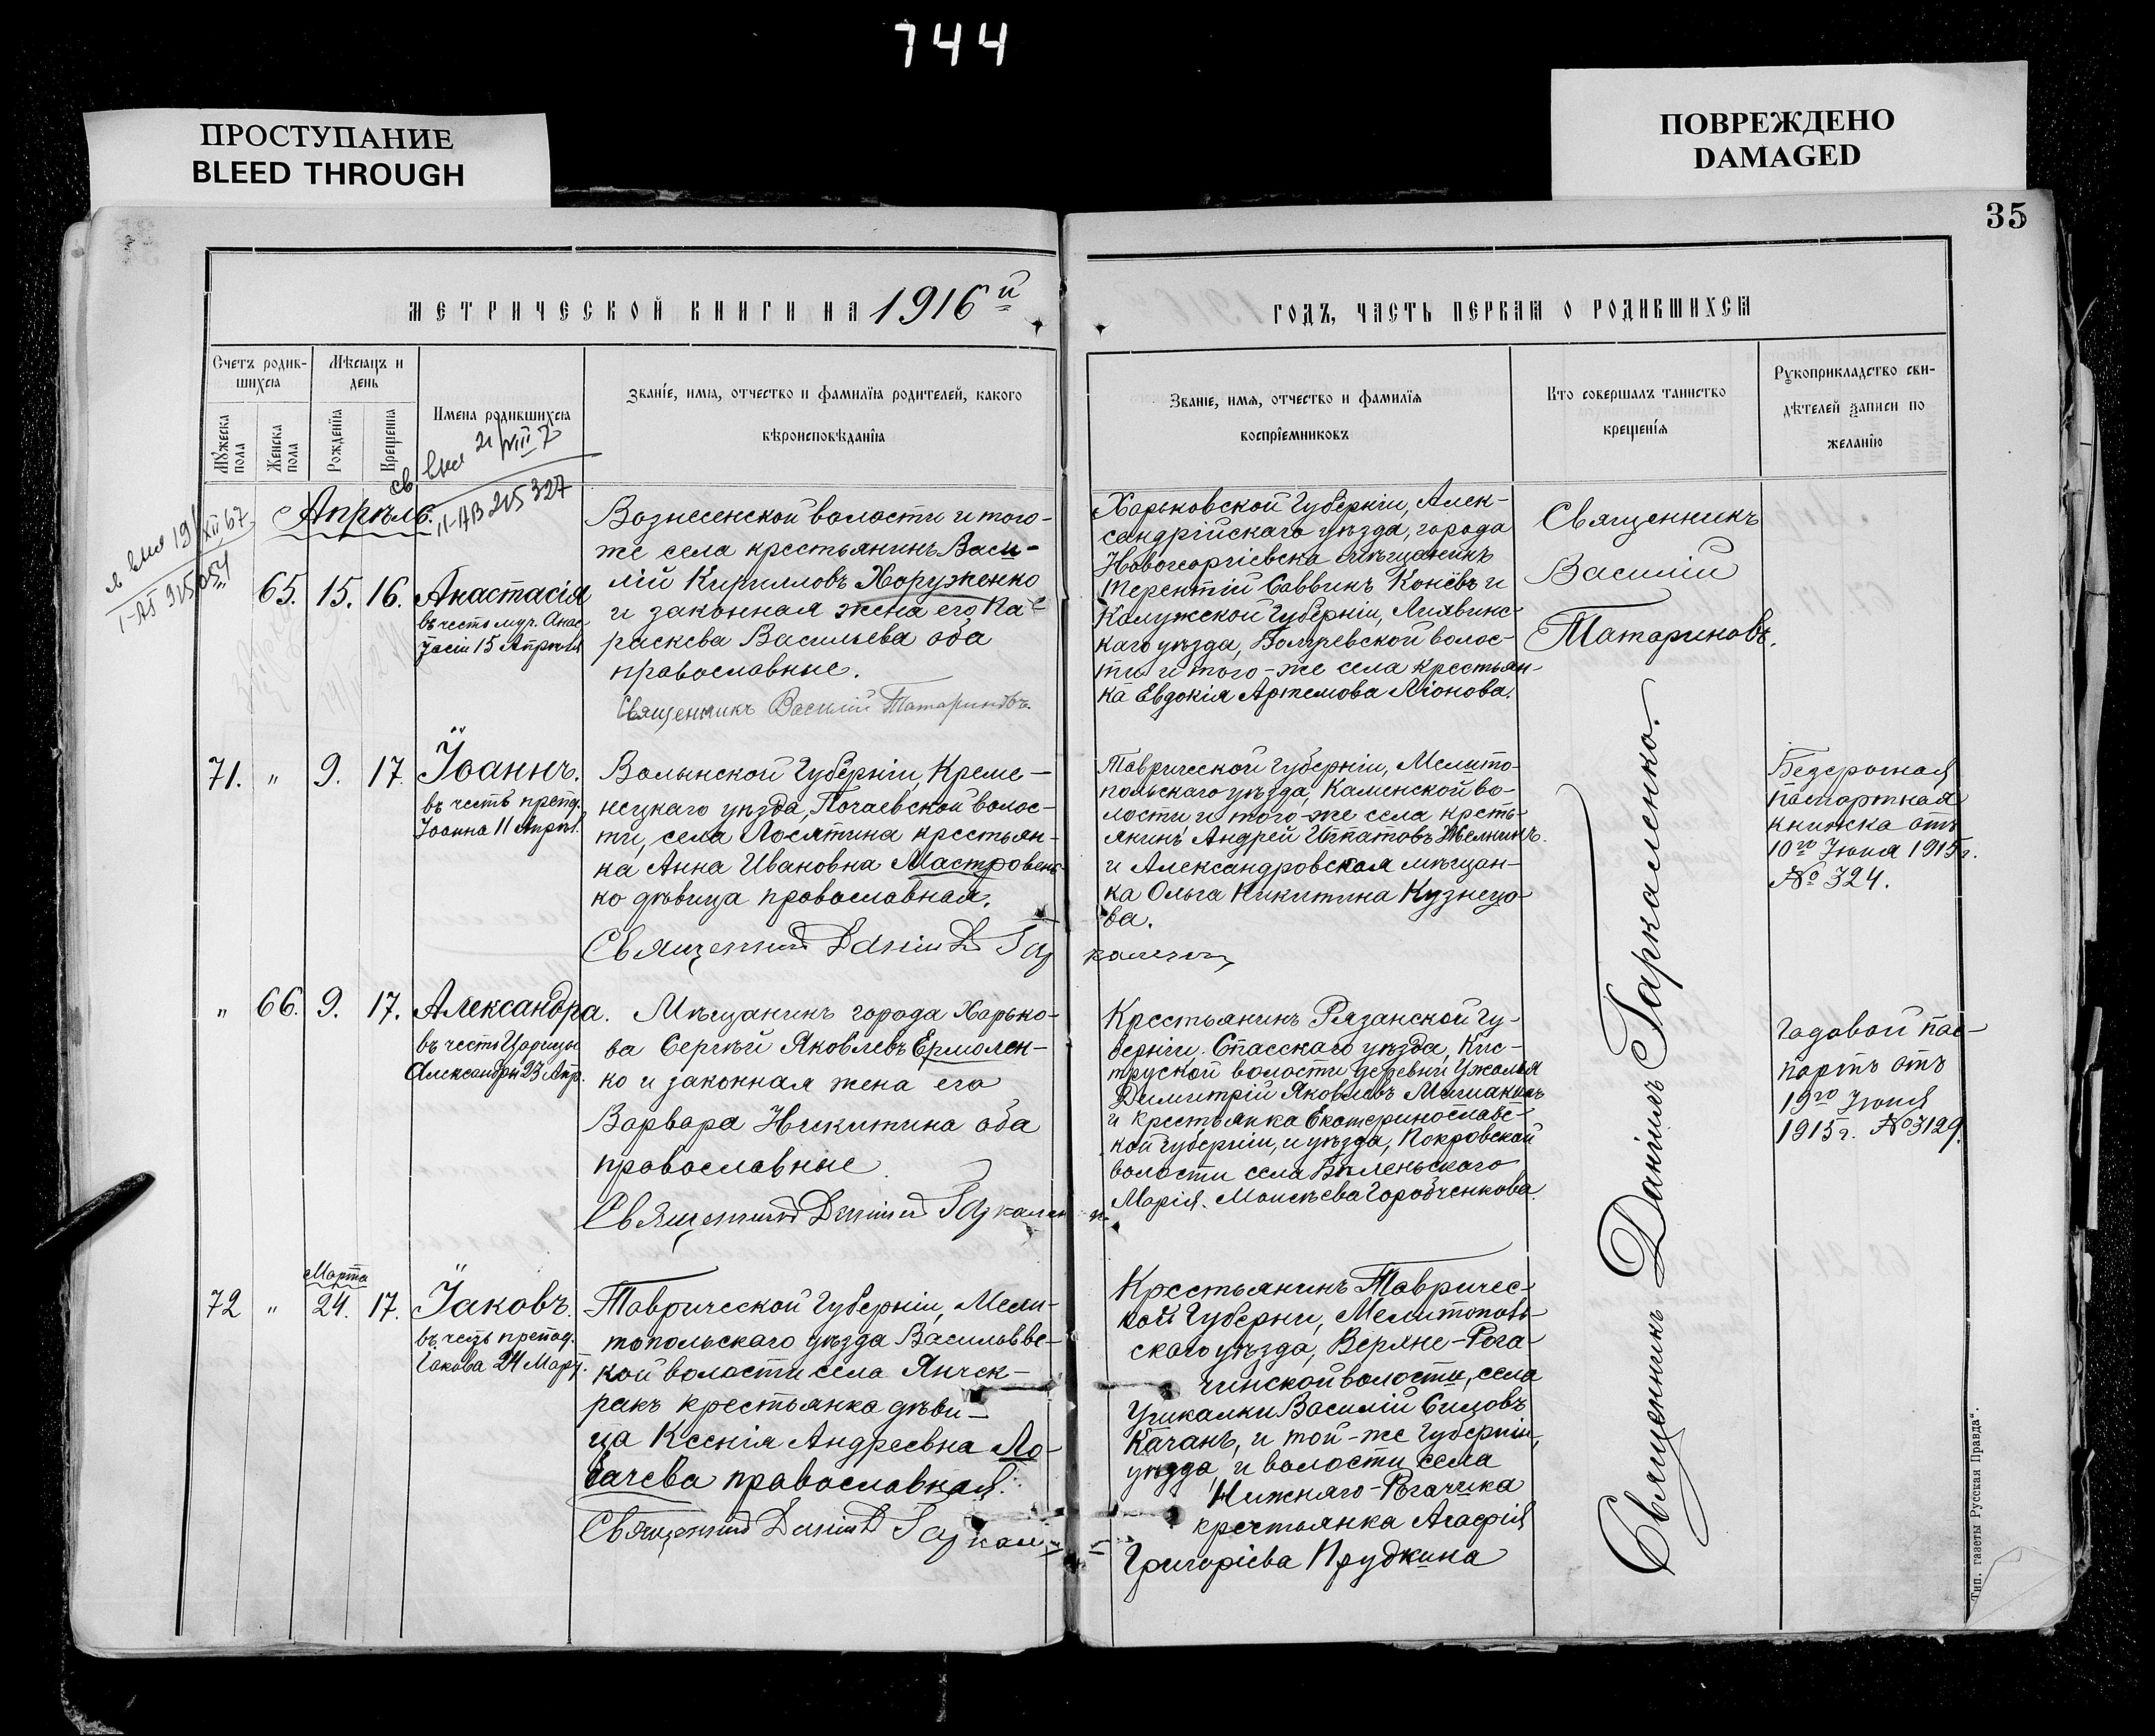 744
ПРОСТУПАНИЕ
BLEED THROUGH
ПОВРЕЖДЕНО
DAMAGED
35
МЕТРИЧЕСКОЙ КНИГИ НА 1916й
ГОДЪ, ЧАСТЬ ПЕРВАЯ О РОДИВШИХСЯ
Счетъ родив-
шихся
Мужеска пола
Женска пола
Мѣсяцъ и
день
Рожденія
Крещенія
Имена родившихся
Званіе, имя, отчество и фамилія родителей, какого
вѣроисповѣданія
Званіе, имя, отчество и фамилія
воспріемниковъ
Кто совершалъ таинство
крещенія
Рукоприкладство сви-
дѣтелей записи по
желанію
II-АВ 215327
Апрѣль.
65. 15. 16. Анастасія
въ честь муч. Анас-
тасіи 15 Апрѣля
Вознесенской волости и того-
же села крестьянинъ Васи-
лій Кирилловъ Харуженко
и законная жена его Па-
раскева Васильева оба
православные.
Священникъ Василій Татариновъ.
Харьковской Губерніи, Алек-
сандрійскаго уѣзда, города
Новогеоргіевска мѣщанинъ
Терентій Саввинъ Конёвъ и
Калужской Губерніи, Лихвинс-
каго уѣзда, волос-
ти и того-же села крестьян-
ка Евдокія Артемова Ліонова.
Священникъ
Василій
Татариновъ.
71. " 9. 17. Іоаннъ.
въ честь препд.
Іоанна 11 Апрѣл.
Волынской Губерніи, Креме-
нецкаго уѣзда, Почаевской волос-
ти, села Лосятина крестьян-
ка Анна Ивановна Мастровень-
ко дѣвица православная.
Священникъ Даніилъ Гаркаленко
Таврической Губерніи, Мелито-
польскаго уѣзда, Каменской во-
лости и того-же села кресть-
янинъ Андрей Игнатовъ
и Александровская мѣщан-
ка Ольга Никитина Кузнецо-
ва.
Безсрочная
паспортная
книжка отъ
10го Іюня 1915г.
№ 324.
" 66. 9. 17. Александра.
въ честь Царицы
Александры 23 Апр.
Мѣщанинъ города Харько-
ва Сергѣй Яковлевъ Ермолен-
ко и законная жена его
Варвара Никитина оба
православные.
Священникъ Даніилъ Гаркаленко
Крестьянинъ Рязанской Гу-
берніи. Спасскаго уѣзда, Кис-
труской волости деревни Ужалья
Димитрій Яковлевъ
и крестьянка Екатеринославс-
кой губерніи, и уѣзда, Покровской
волости села Бѣленьскаго
Марія Моисѣева Горобченкова.
Годовой пас-
портъ отъ
19го Іюня
1915г. № 3129.
Марта
72 " 24. 17. Іаковъ.
въ честь препод.
Іакова 24 Март.
Таврической Губерніи, Мели-
топольскаго уѣзда Васильевс-
кой волости села Янчек-
ракъ крестьянка дѣви-
ца Ксенія Андреевна Ло-
бачева православная.
Священникъ Даніилъ Гаркаленко
Крестьянинъ Тавричес-
кой Губерни, Мелитополь-
скаго уѣзда, Верхне-Рога-
чинской волости, села
Ушкалки Василій Сидовъ
Качанъ, и той-же Губерніи,
уѣзда, и волости села
Нижняго-Рогачика
крестьянка Агафія
Григорієва Прудкина
Священникъ Даніилъ Гаркаленко.
Тип. газеты „Русская Правда“.